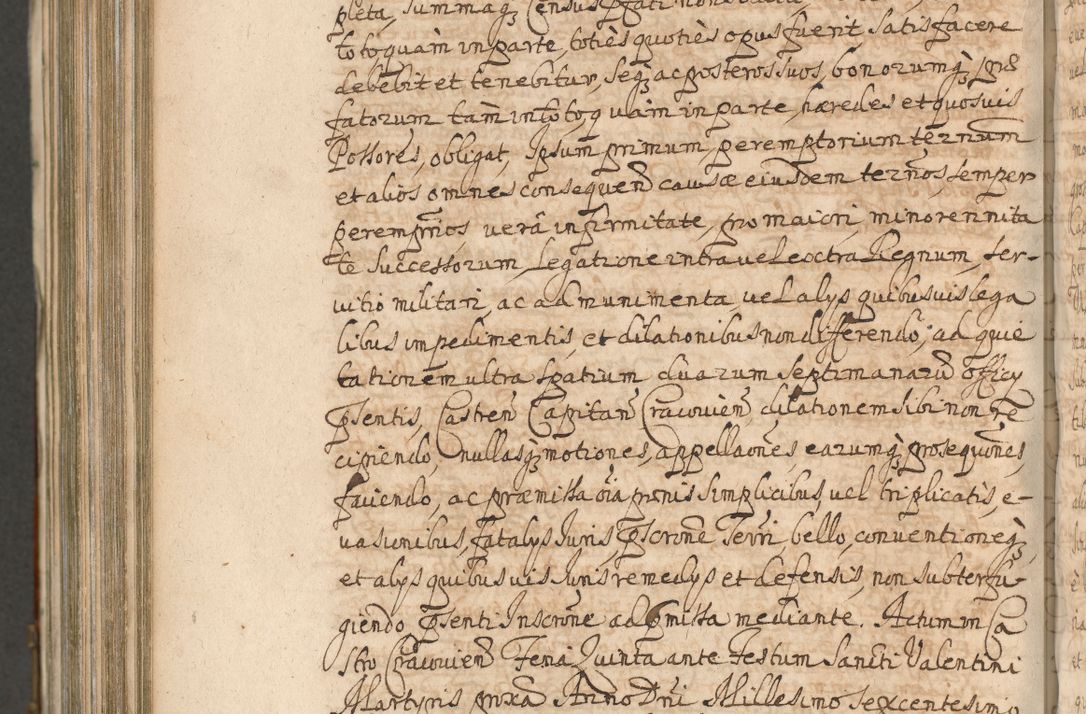 pleta, summaq3 Census pfati non
toto quàm in parte, totiès quotiès opus fuerit satisfacere
debebit et tenebitur, seq3 ac posteros suos, bonorumq3 prae
fatorum tàm in toto quàm in parte, haeredes et quosvis
Possores, obligat, Ipsum primum peremptorium ternum
et alios omnes consequen causae eiusdem terños, semper
perempños, verâ infirmitate, pro maiori, minorennita
te Successorum, Legatione intra vel extra Regnum, ser-
vitio militari, ac ad munimenta vel alys quibusvis lega
libus impedimentis, et dilationibus non differendo, ad quie
tationem ultra spatium duarum septimanaru officy
psentis, Castren Capitan Cracovien, dilationem sibi non re
cipiendo, nullasq3 motiones, appellaones, earumq3 prosequones,
faciendo, ac praemissa oia penis simplicibus, vel triplicatis, e-
vasionibus, fatalys Juris, pscrone Terri, bello, conventioneq3,
et alys quibusvis Juris remedys et defensis, non subterfu-
giendo psenti Inscrone ad pmissa mediante. Actum in Ca
stro Cracovien Feria Quinta ante Festum Sancti Valentini
Martyris proxa Anno Dni Millesimo sexcentesimo